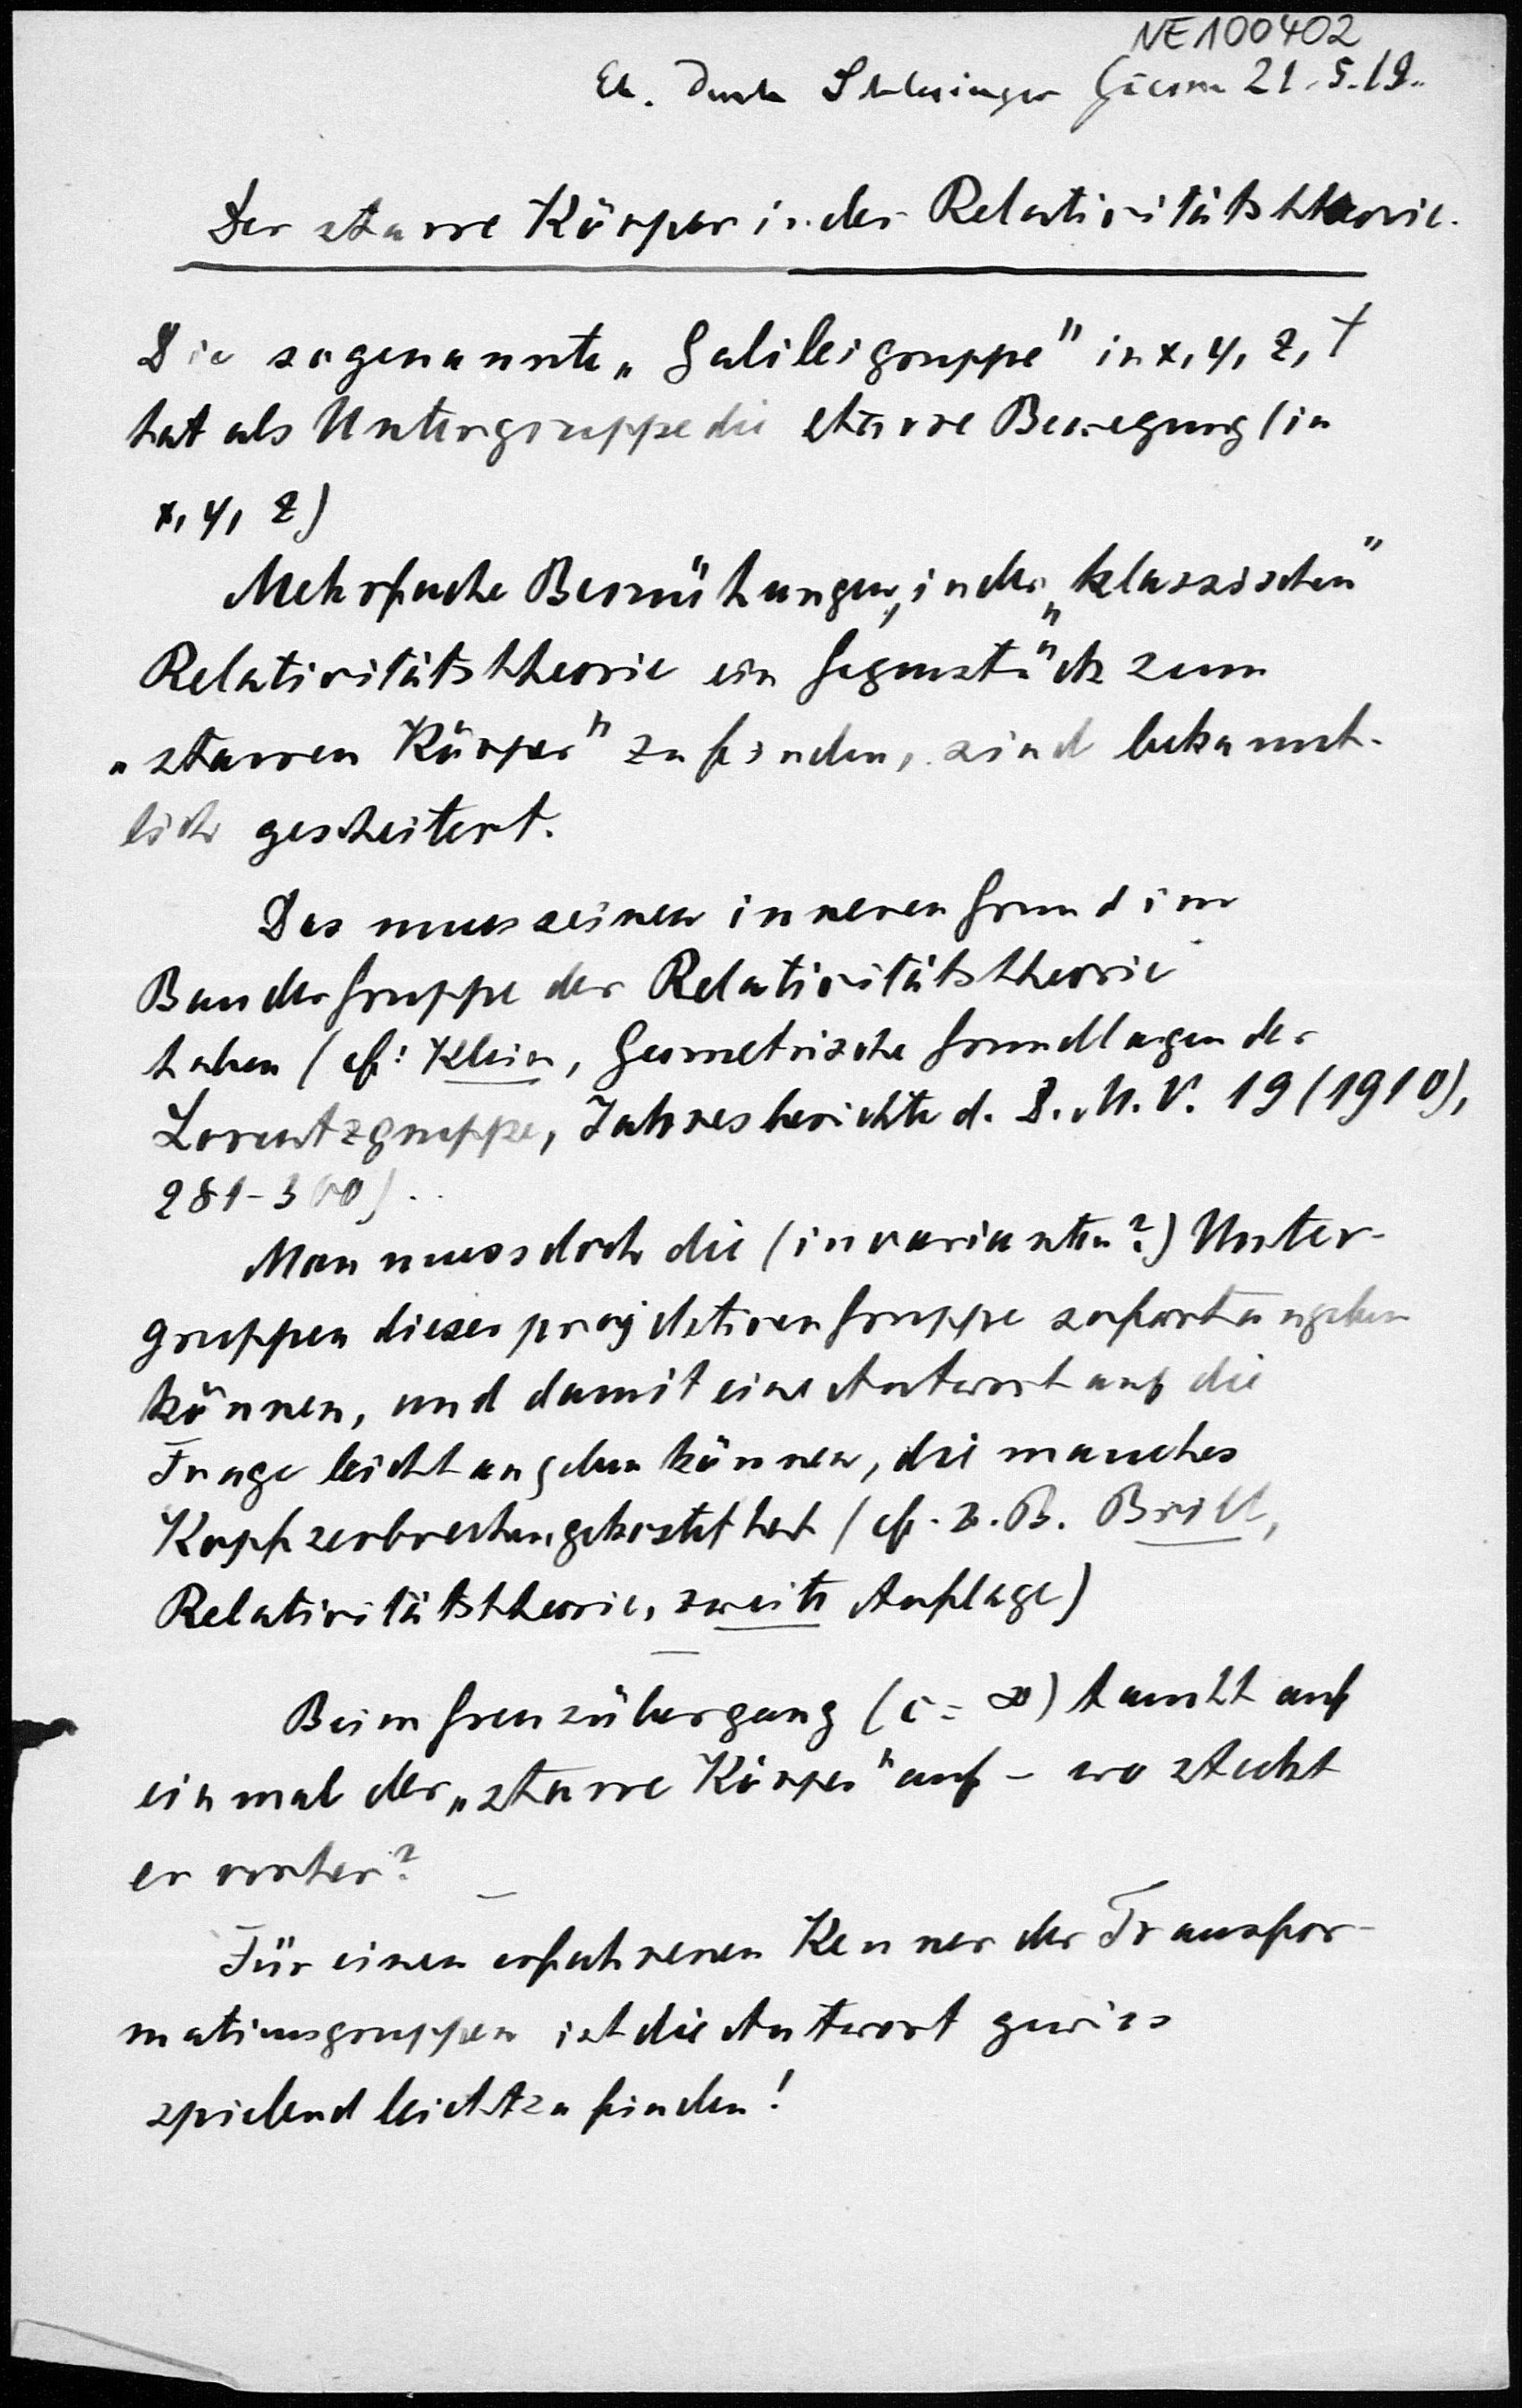 NE100402
Eh. durch Schlesinger Giessen 21.5.19.
Der starre Körper in der Relativitätstheorie.
Die sogenannte „Galileigruppe" in x, y, z, t
hat als Untergruppe die starre Bewegung (in
x, y, z)
Mehrfache Bemühungen, in der „klassischen"
Relativitätstheorie ein Gegenstück zum
„starren Körper" zu finden, sind bekannt-
lich gescheitert.
Das muss seinen inneren Grund im
Bau der Gruppe der Relativitätstheorie
haben (cf: Klein, Geometrische Grundlagen der
Lorentzgruppe, Jahresberichte d. D. M. V. 19 (1910),
281-300).
Man muss doch die (invarianten?) Unter-
gruppen dieser projektiven Gruppe sofort angeben
können, und damit eine Antwort auf die
Frage leicht angeben können, die manches
Kopfzerbrechen gekostet hat (cf. z. B. Brill,
Relativitätstheorie, zweite Auflage)
Beim Grenzübergang (c = ∞) taucht auf
einmal der „starre Körper" auf - wo steckt
er vorher?
Für einen erfahrenen Kenner der Transfor-
mationsgruppen ist die Antwort gewiss
spielend leicht zu finden!